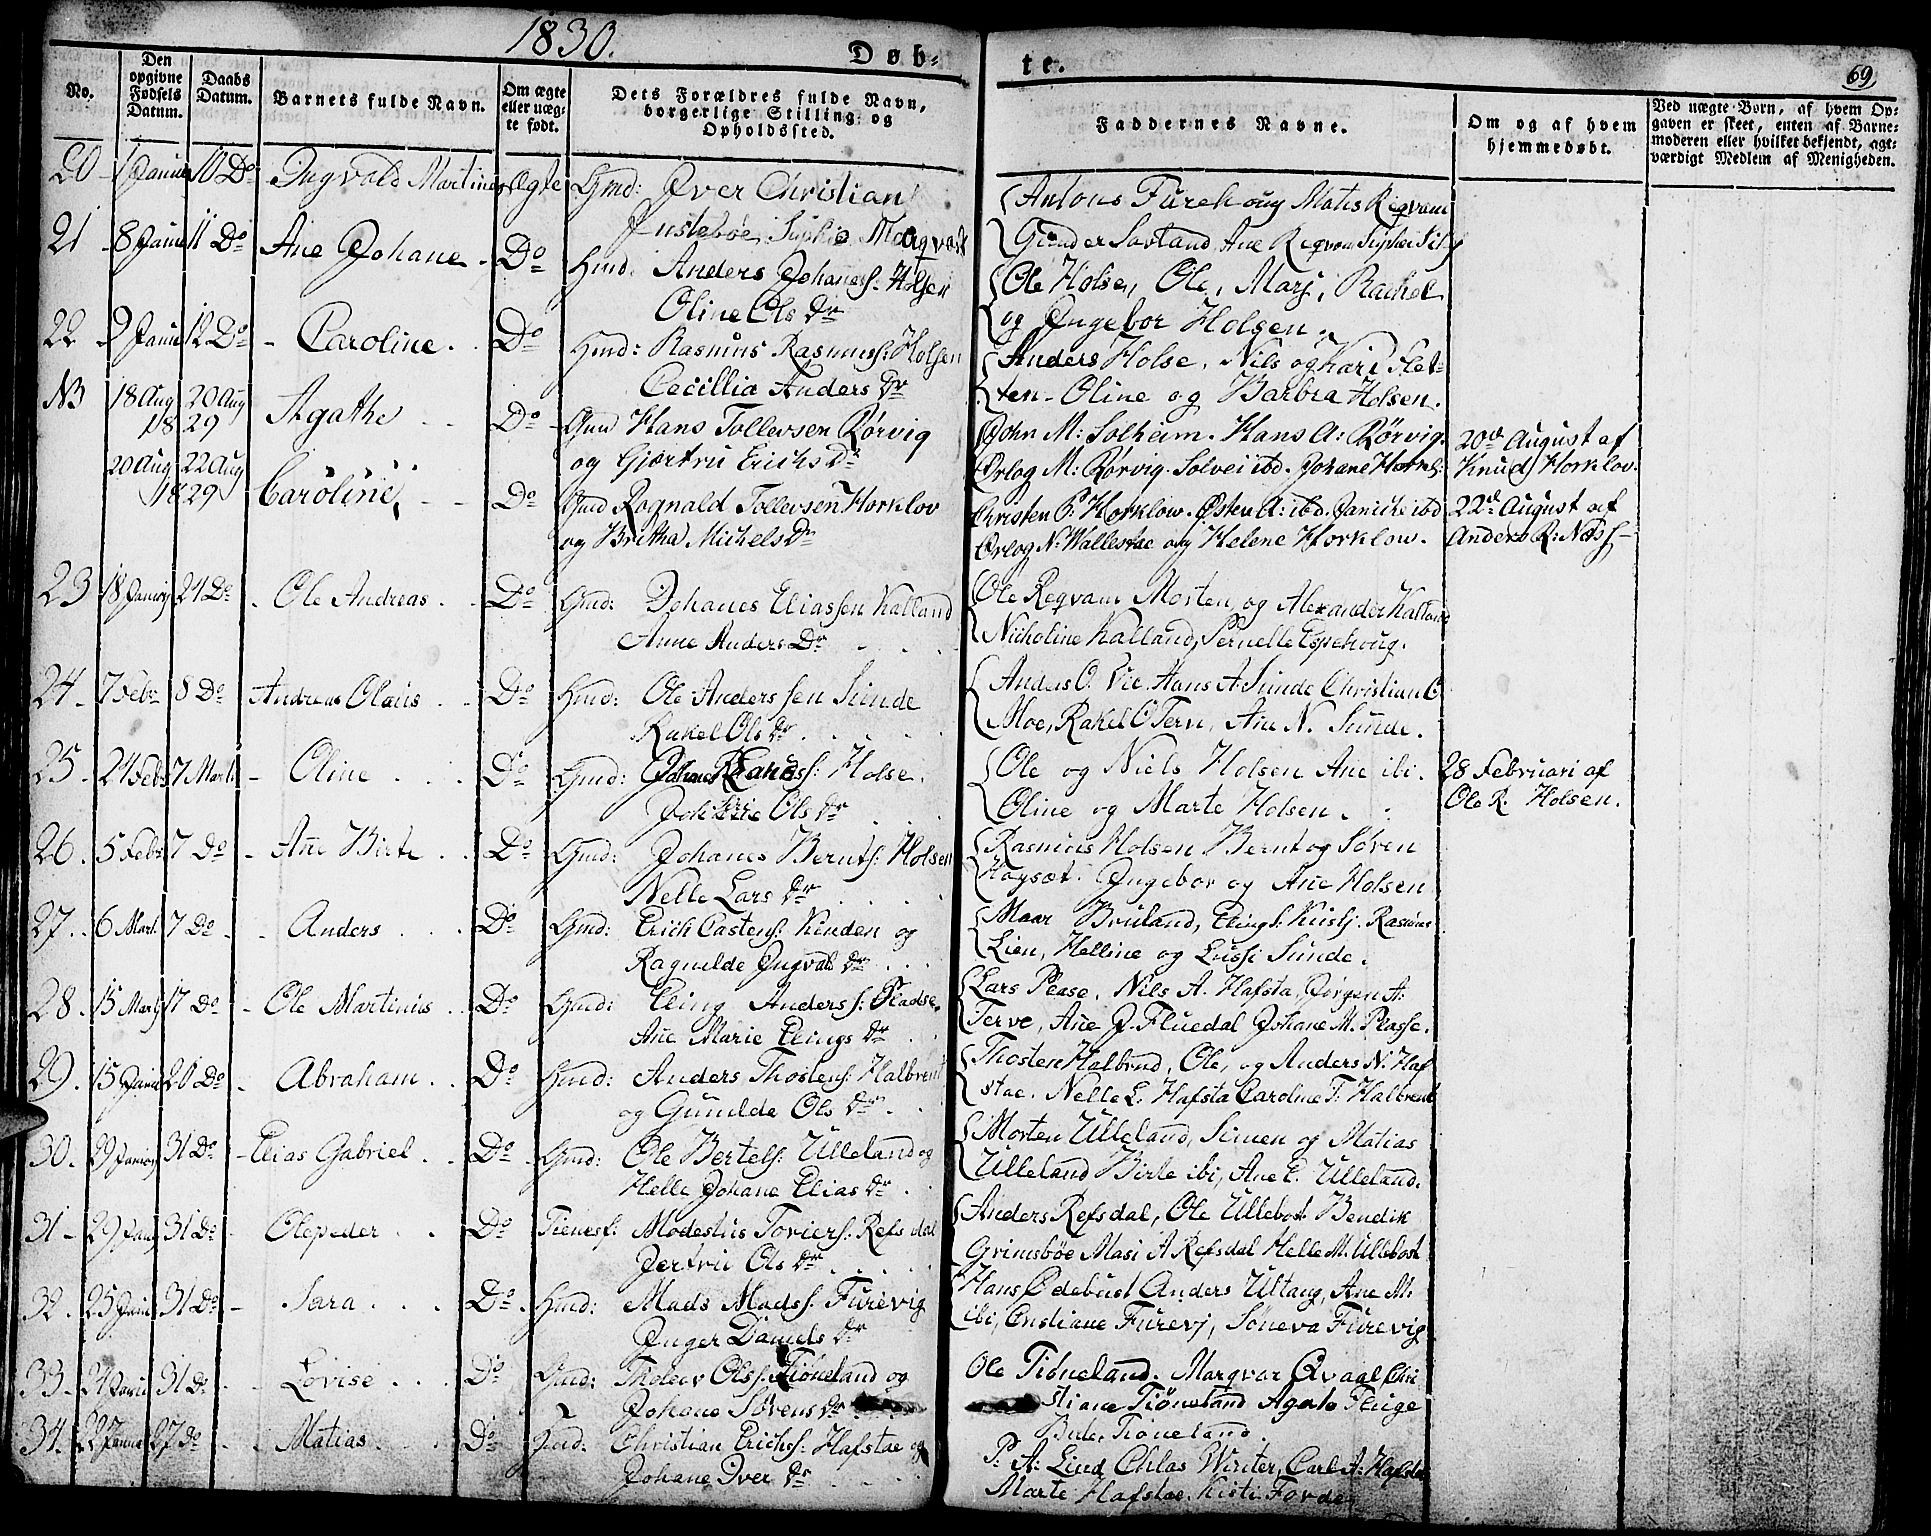 1830.
Døb-
te.
69
No.
Den opgivne Fødsels Datum.
Daabs Datum.
Barnets fulde Navn.
Om ægte eller uæg- te født.
Dets Forældres fulde Navn, borgerlige Stilling og Opholdssted.
Faddernes Navne.
Om og af hvem hjemmedøbt.
Ved uægte Børn, af hvem Op- gaven er skeet, enten af Barne- moderen eller hvilket bekjendt, agt- værdigt Medlem af Menigheden.
20 10 Do Ingvald Martinus Ægte Gmd: Iver Christian
Antons Furehoug Matis Reqvam
Gunder Savland, Ane Reqvam
21 8 Janu 11 Do Ane Johane Do Hmd: Anders Johaness: Holsen
Oline Ols Dr
Ole Holsen, Ole, Marj, Rachel
og Ingebor Holsen.
22 9 Janu 12 Do Caroline Do Hmd: Rasmus Rasmuss: Holsen
Cecillia Anders Dr
Anders Holse, Nils og Kari Slet-
ten - Oline og Barbra Holsen.
NB 18 Aug 20 Aug
1829
Agathe Do Gmd Hans Tollevsen Rørvig
og Gjærtru Erichs Dr
John M: Solheim. Hans A: Rørvig.
Ørlog M: Rørvig. Solvei ibd. Johane Horkl:
20de August af
Knud Horklov.
20 Aug 22 Aug
1829
Caroline Do Gmd Rognald Tollevsen Horklov
og Britha Michels Dr
Christen P. Horklow. Østen A: ibd. Janiche ibd
Ørlog N: Wallestae og Helene Horklow.
22de August af
Anders R: Næss
23 18 Janu 24 Do Ole Andreas Do Gmd: Johanes Eliassen Kalland
Anne Anders Dr
Ole Reqvam Morten, og Alexander Kalland
Nicholine Kalland, Pernelle Espehoug.
24 7 Febr 8 Do Andreas Olaus Do Hmd: Ole Anderssen Sunde
Rakel Ols Dr
Anders O. Vie. Hans A. Sunde Christian O.
Moe, Rakel O Terv, Ane N. Sunde.
25 24 Febr 7 Marti Oline Do Gmd: Holse.
Ols Dr
Ole og Niels Holsen Ane ibi.
Oline og Marte Holsen.
28 Februari af
Ole R. Holsen.
26 5 Febr 7 Do Ane Birte Do Gmd: Johanes Bernts: Holsen
Nelle Lars Dr
Rasmus Holsen Bernt og Søren
Hagsæt. Ingebor og Ane Holsen
27 6 Mart 7 Do Anders Do Gmd: Erick Castens: Kinden og
Ragnilde Ingvals Dr
Maar Bruland, Elings: Kusly. Rasmus
Lien, Helline og Lussi Sunde.
28 15 Marty 17 Do Ole Martinus Do Gmd: Eling Anderss: Pladse.
Ane Marie Elings Dr
Lars Plase. Nils A. Hafsta, Jørgen A:
Terve, Ane J. Fluedal Johane M. Plasse.
29 15 Janu 20 Do Abraham Do Hmd: Anders Thostens: Halbrent
og Gunilde Ols Dr
Thosten Halbrnd, Ole, og Anders N. Haf
stae. Nelle L. Hafsta Caroline T. Halbrent
30 29 Janu 31 Do Elias Gabriel Do Gmd: Ole Bertels: Ulleland og
Helle Johane Elias Dr
Morten Ulleland, Simen og Matias
Ulleland Birte ibi, Ane E. Ulleland.
31 29 Janu 31 Do Olepeder Do Tienesf: Modestus Toviers: Refsdal
Jertru Ols Dr
Anders Refsdal, Ole Ullebost Bendik
Grimsbøe Masi A Refsdal Helle M. Ullebost
32 25 Janu 31 Do Sara Do Hmd: Mads Madss: Furevig
Inger Daniels Dr
Hans Ødebust Anders Ultang, Ane M.
ibi, Cristiane Furevj, Søneva Furevig
33 24 Janu 31 Do Lovise Do Gmd: Tholeiv Olss: Tiøneland og
Johane Sørens Dr
Ole Tiøneland. Marqvar Qvaal Chri
stiane Tiøneland Agate Fluge
Birte Tiøneland.
34 22 Janu 27 Do Matias Do Hmd: Christian Erichs: Hafstae og
Johane Iver Dr
P: A: Lind Chlas Winter, Carl A: Hafsta
Marte Hafstae. Kisti Førde